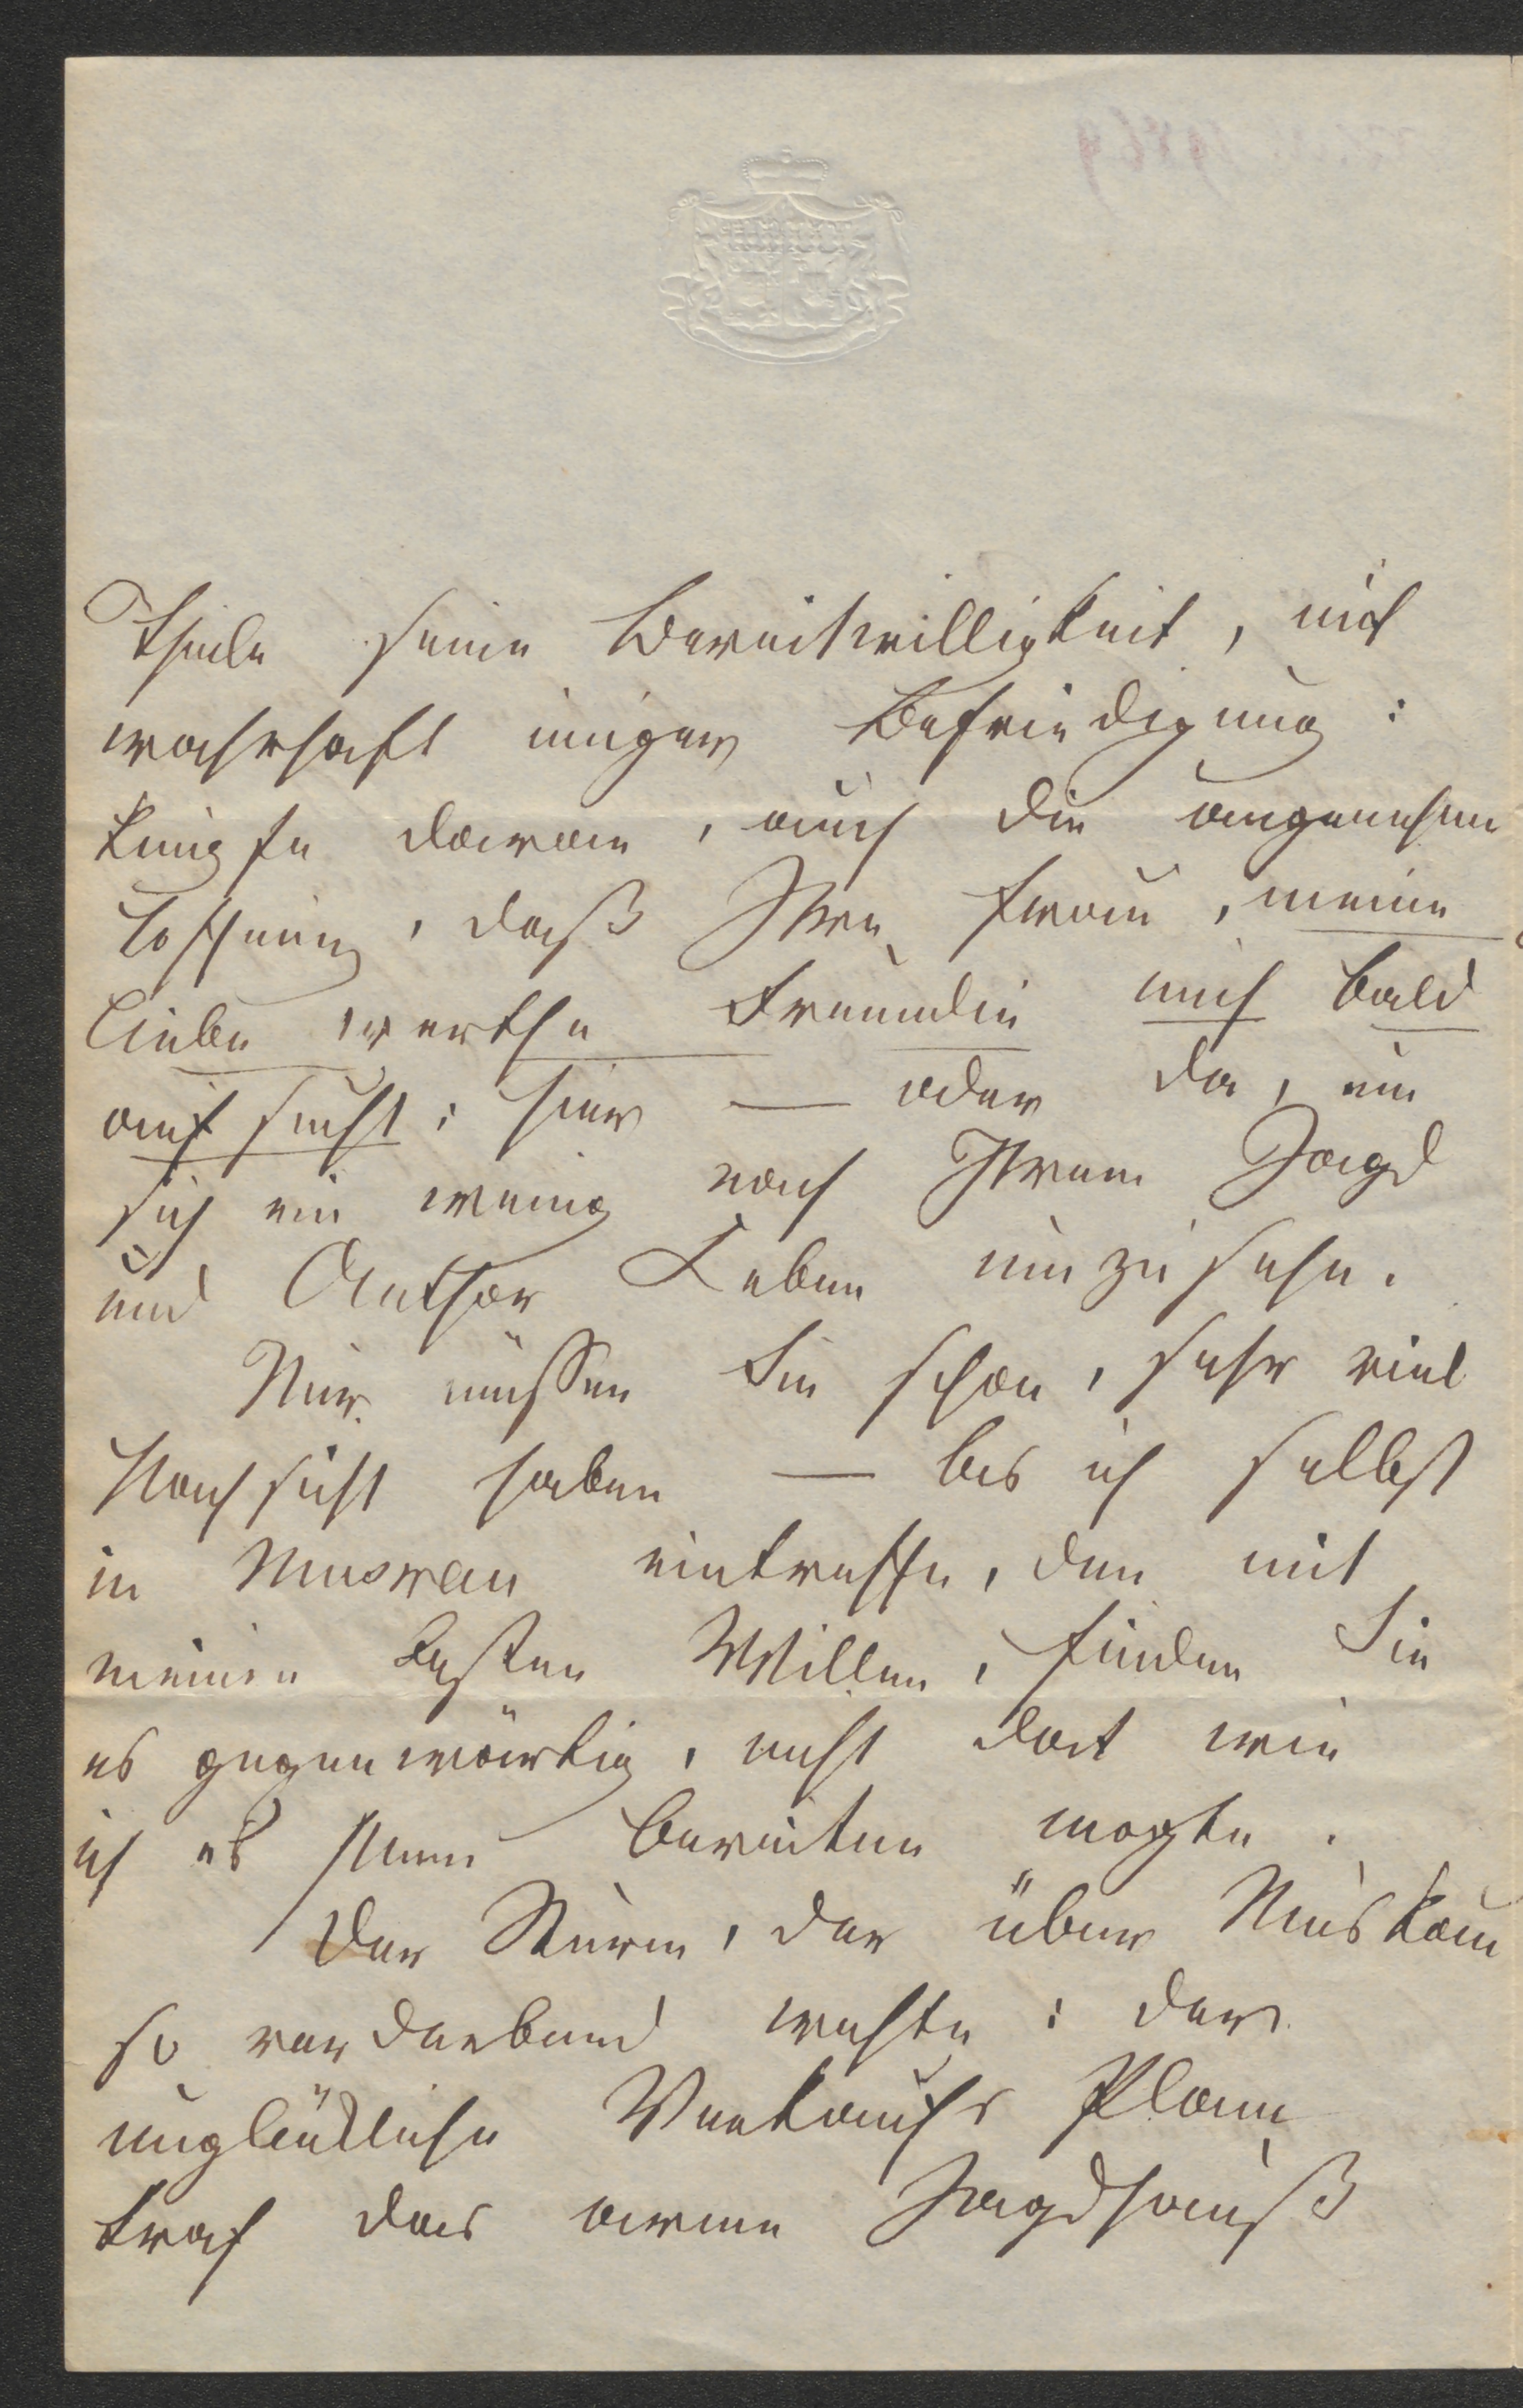 Theile seine Bereitwilligkeit, mit
wahrhaft inniger Befriedigung:
knüpfe daran, auch die angenehme
Hoffnung, daß Ihre Frau, meine
liebe werthe Freundin mich bald
auf sucht: hier — oder da, um
sich ein wenig nach Ihrem Jagd
und Author Leben umzusehn.
Nur müssen Sie schon, sehr viel
Nachsicht haben — bis ich selbst
in Muskau eintreffe, den mit
meinen besten Willen, finden Sie
es gegenwärtig, nicht dort wie
ich es Ihnen bereiten mogte.
Der Sturm, der über Muskau
so verderbend wehte: der
unglückliche Verkaufs Plan
traf das arme Jagdhauß